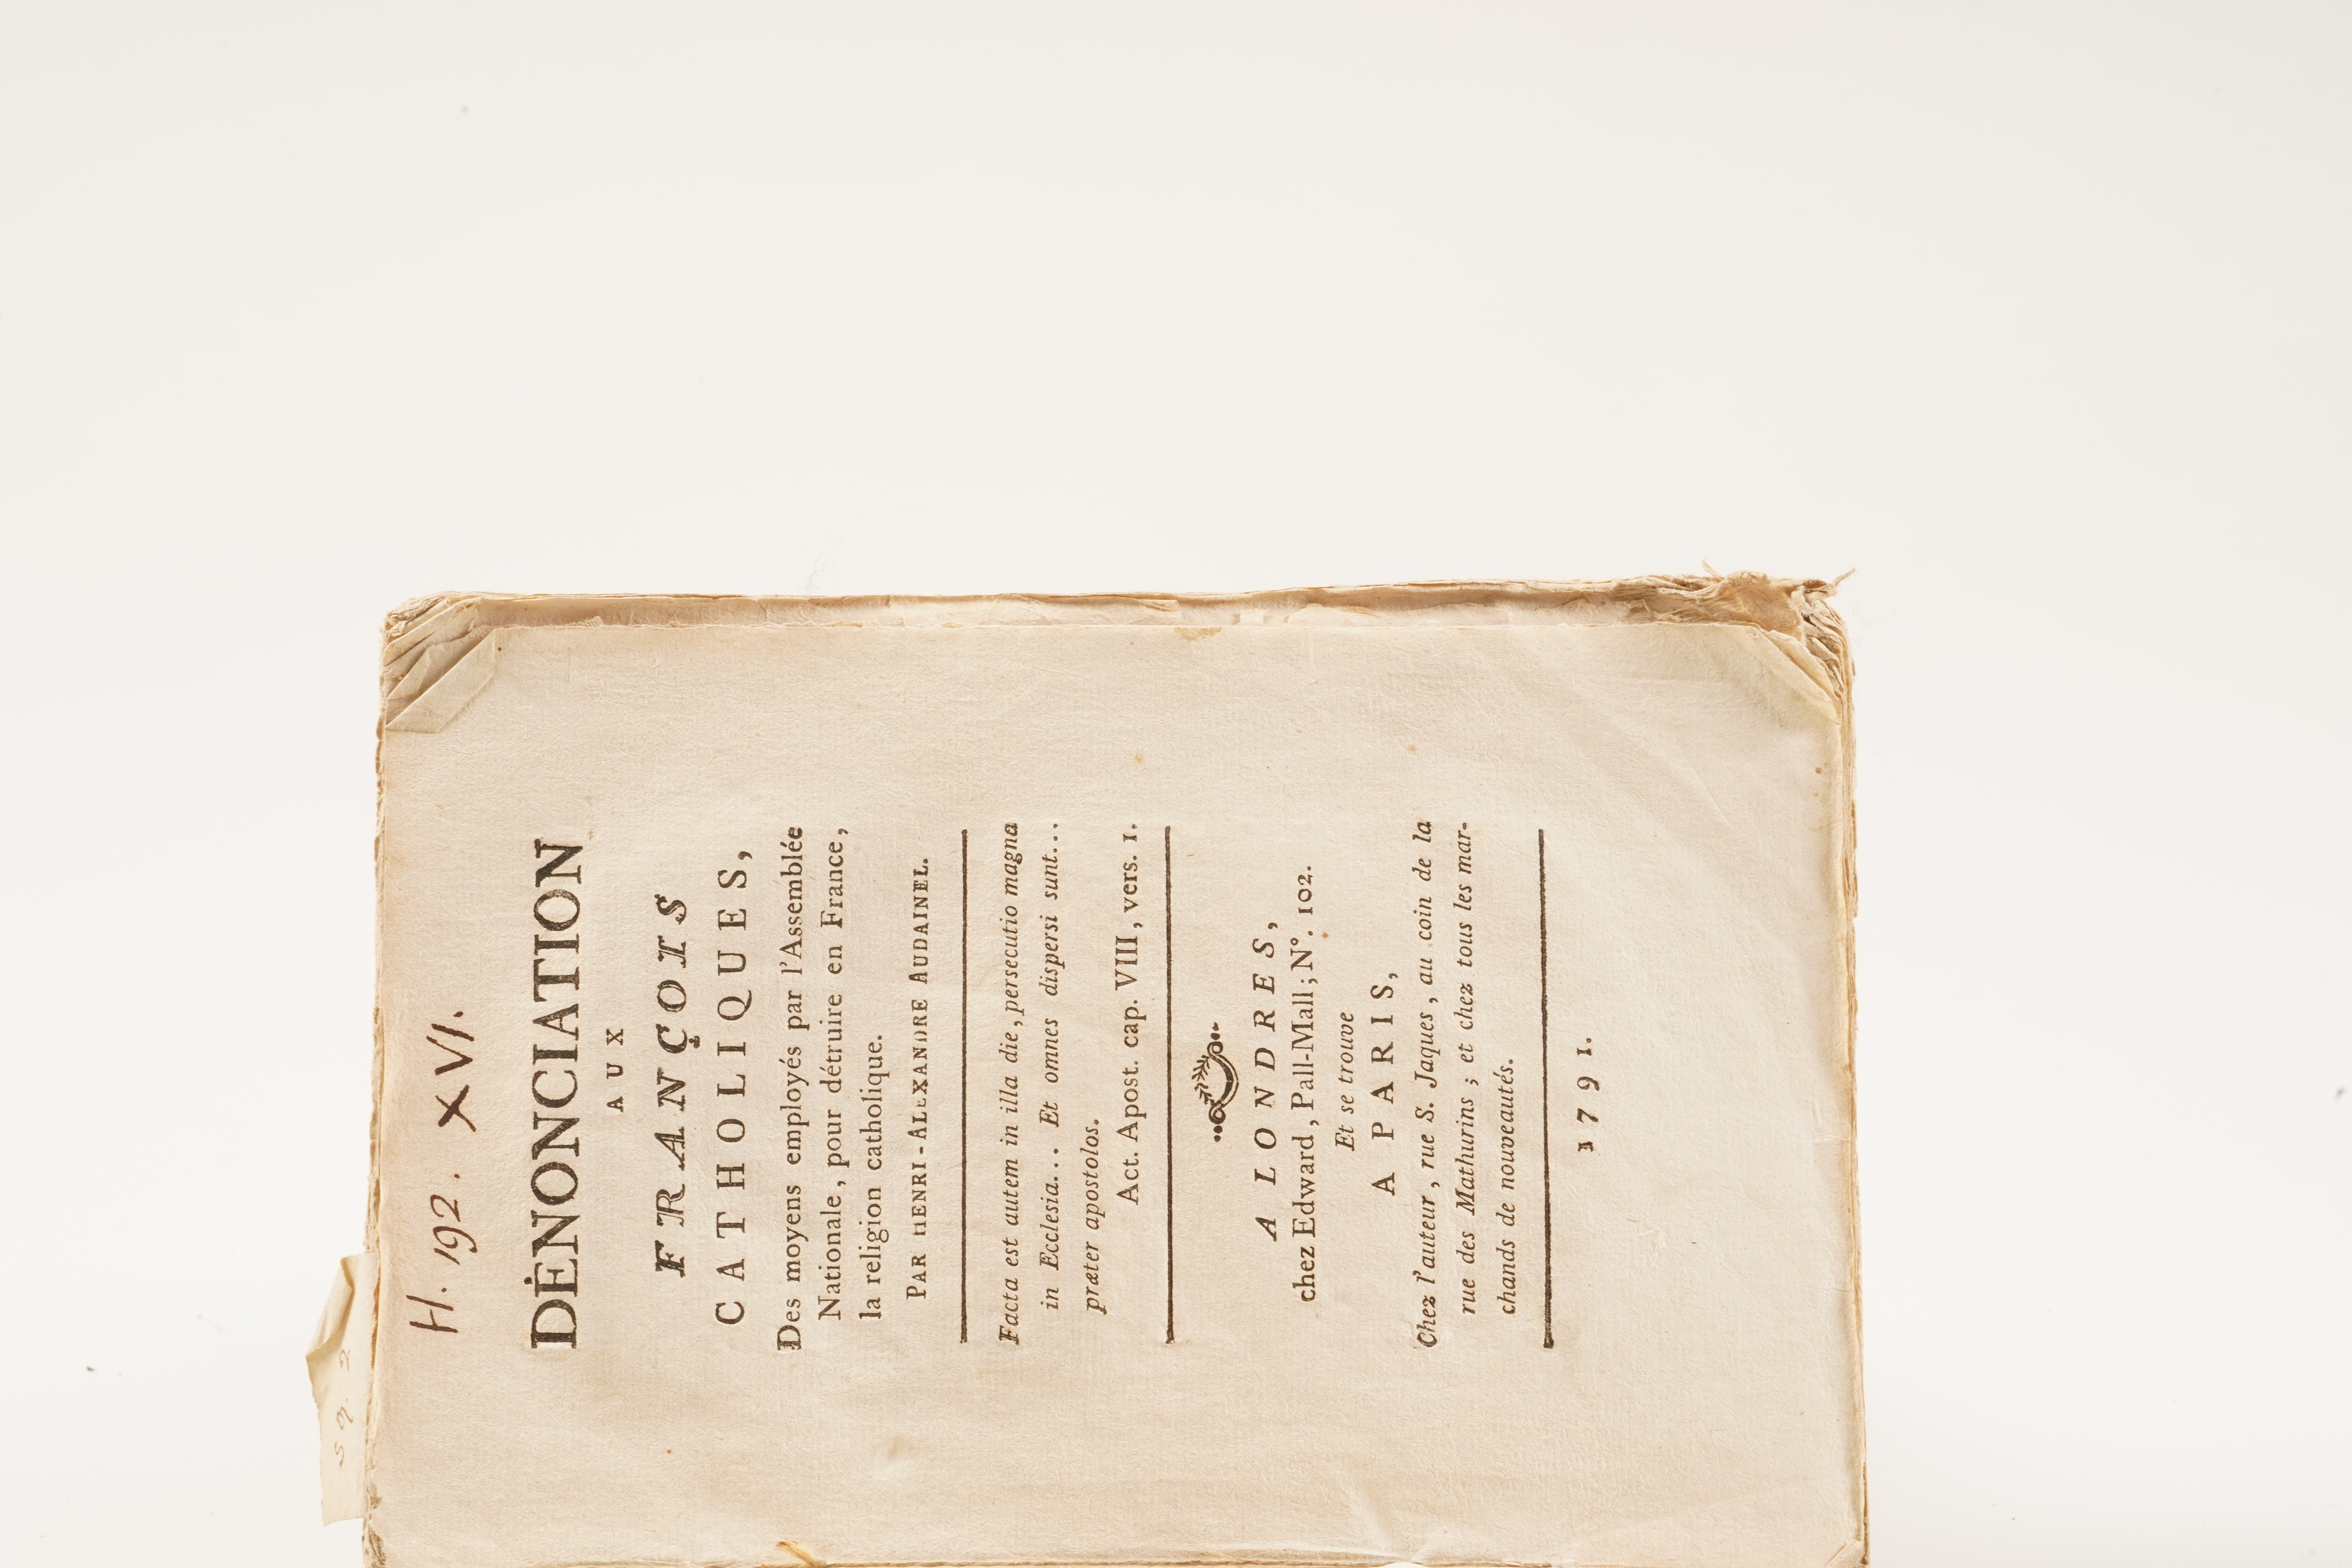 H. 192. XVI.
DÉNONCIATION
AUX
FRANÇOIS
CATHOLIQUES,
Des moyens employés par l'Assemblée
Nationale, pour détruire en France,
la religion catholique.
PAR HENRI-ALEXANDRE AUDAINEL.
Facta est autem in illa die, persecutio magna
in Ecclesia... Et omnes dispersi sunt...
præter apostolos.
Act. Apost. cap. VIII, vers. 1.
A LONDRES,
chez Edward, Pall-Mall; N°. 102.
Et se trouve
A PARIS,
Chez l'auteur, rue S. Jaques, au coin de la
rue des Mathurins; et chez tous les mar-
chands de nouveautés.
1791.